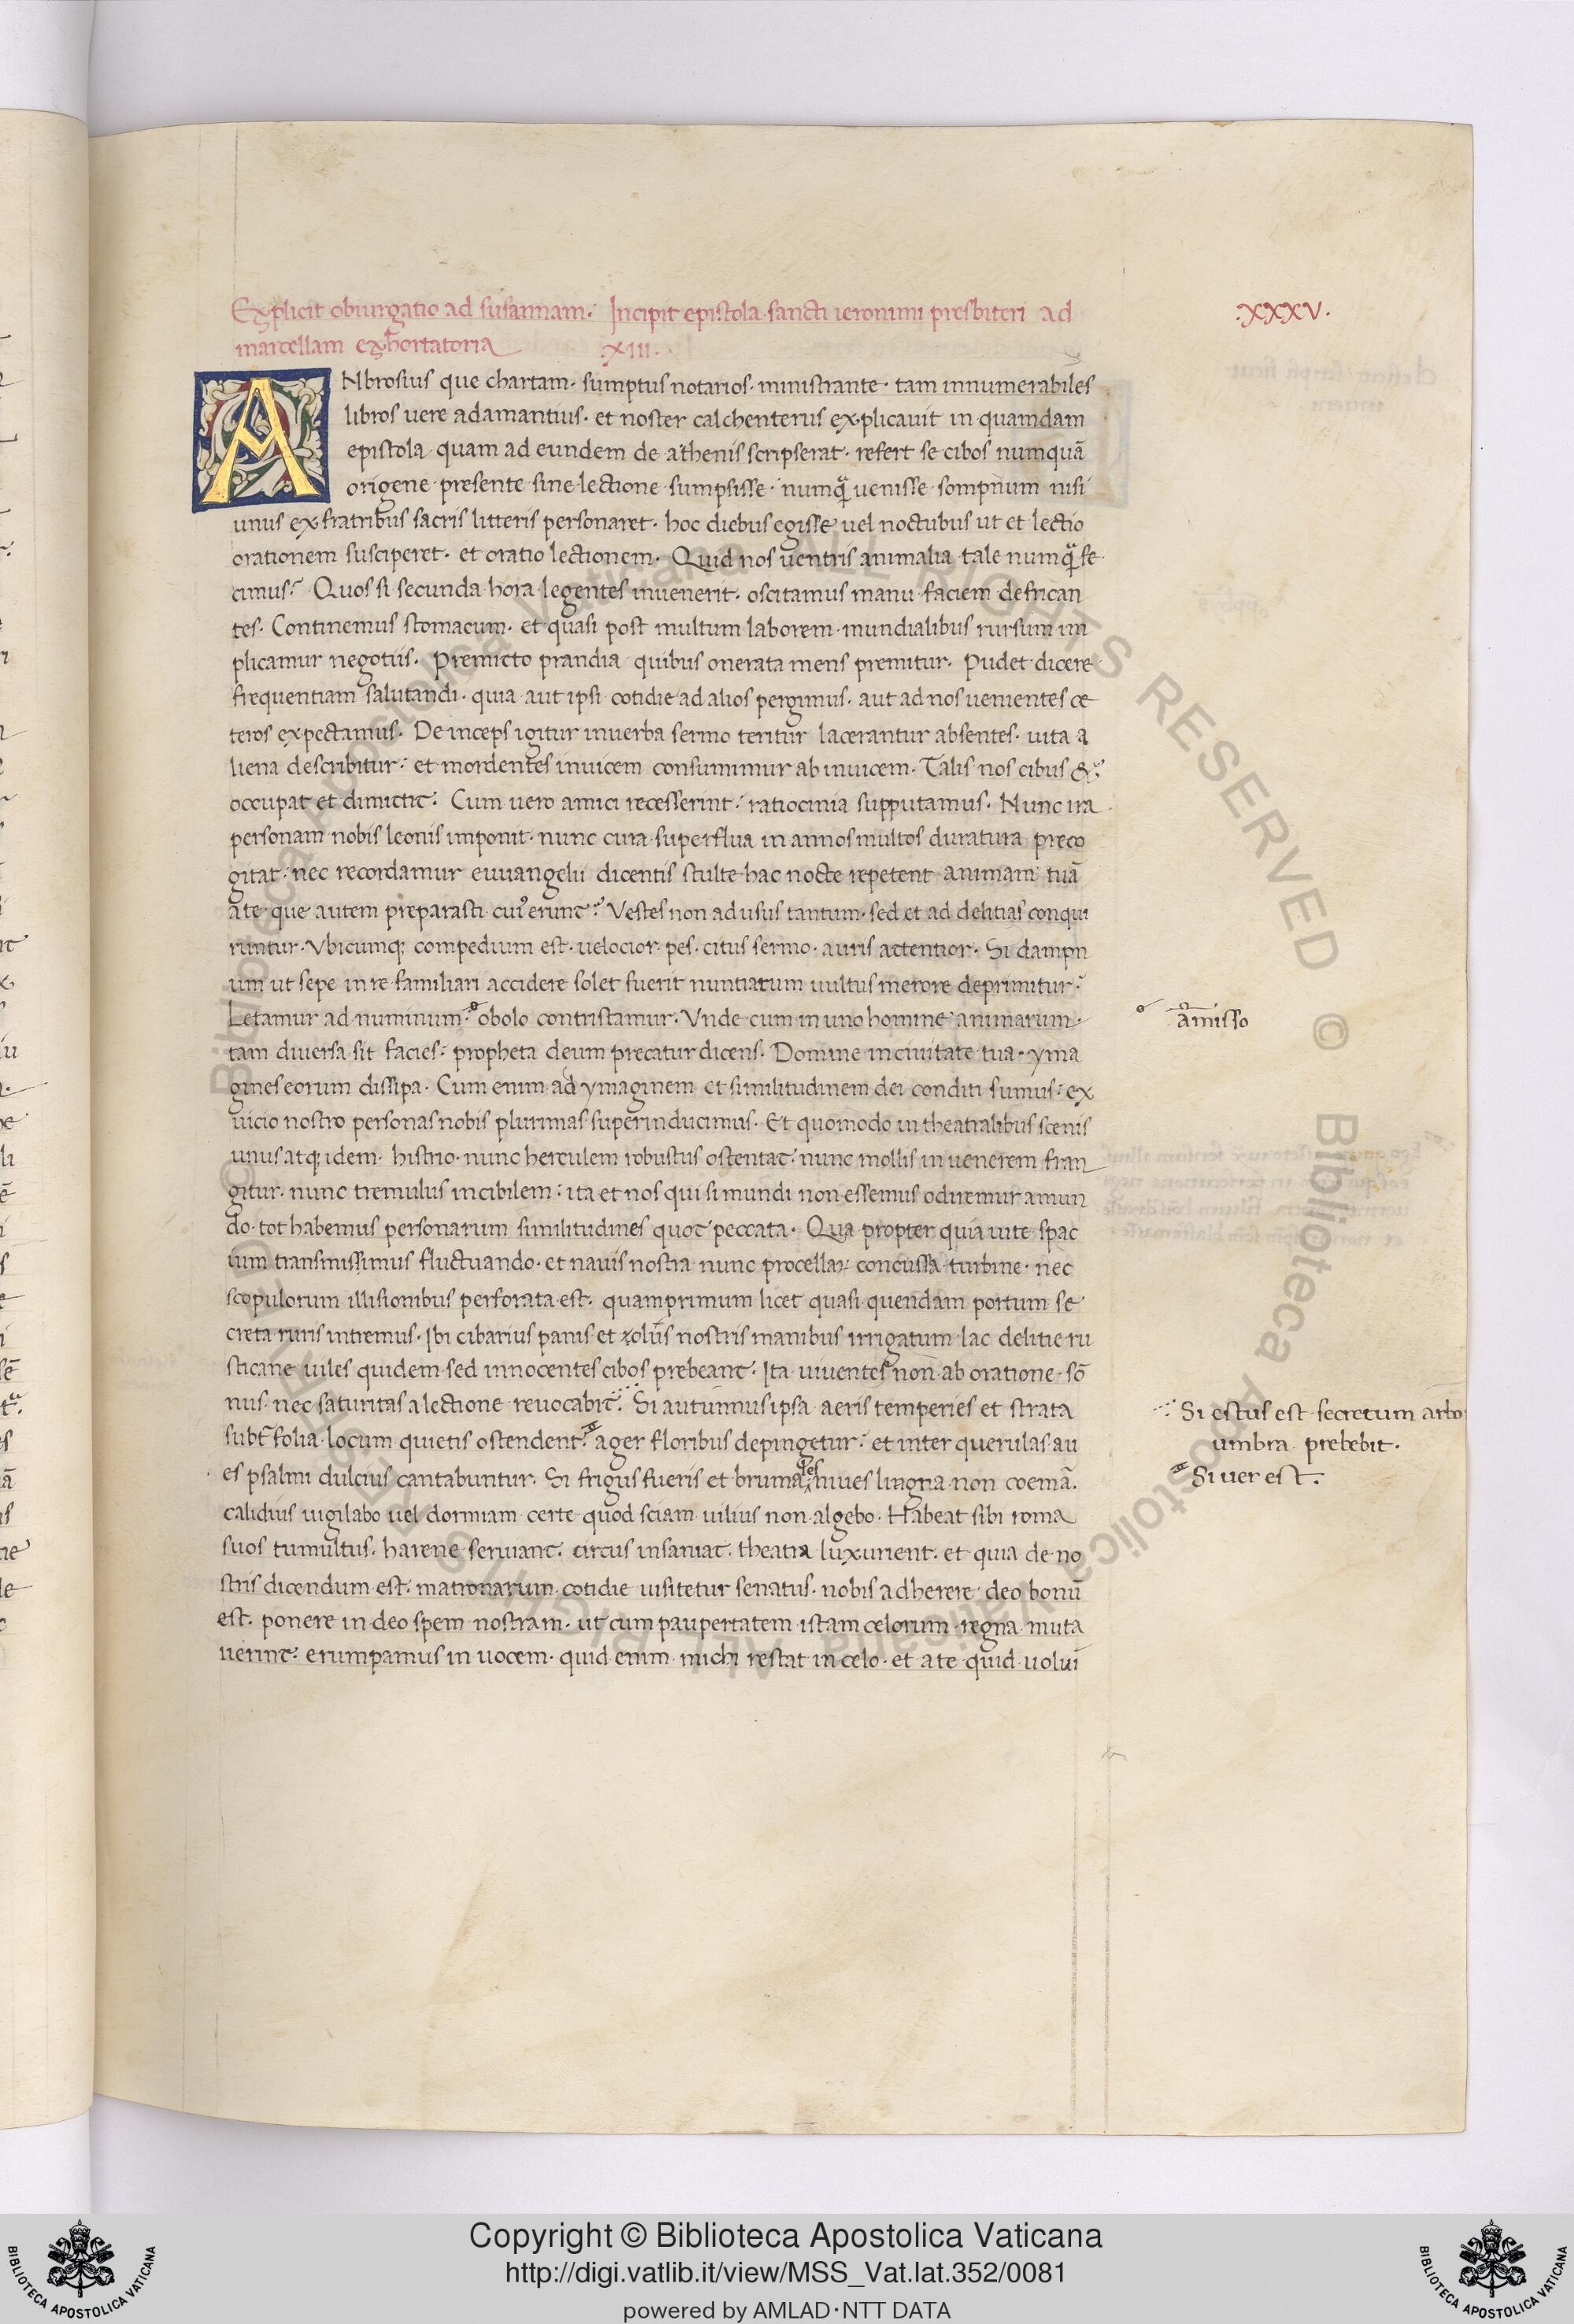 Explicit obiurgatio ad susannam. Incipit epistola sancti ieronimi presbiteri ad
marcellam exhortatoria .XIII.
.XXXV.
AMbrosius que chartam. sumptus notarios. ministrante. tam innumerabiles
libros uere adamantius. et noster calchenterus explicavit in quamdam
epistola quam ad eundem de athenis scripserat. refert se cibos numquā
origene presente sine lectione sumpsisse. numqᷓ uenisse sompnum nisi
unus ex fratribus sacris litteris personaret. hoc diebus egisse uel noctubus ut et lectio
orationem susciperet. et oratio lectionem. Quid nos uentris animalia tale numqᷓ fe
cimus? Quos si secunda hora legentes inuenerit. oscitamus manu faciem defrican
tes. Continemus stomacum. et quasi post multum laborem. mundialibus rursum im
plicamur negotiis. Premicto prandia quibus onerata mens premitur. Pudet dicere
frequentiam salutandi. quia aut ipsi cotidie ad alios pergimus. aut ad nos uenientes ce
teros expectamus. De inceps igitur inuerba sermo teritur lacerantur absentes. uita a
liena describitur: et mordentes inuicem consumimur ab inuicem. Talis nos cibus &
occupat et dimictit. Cum uero amici recesserint: ratiocinia supputamus. Nunc ira
personam nobis leonis imponit. nunc cura superflua in annos multos duratura preco
gitat. nec recordamur euuangelii dicentis stulte hac nocte repetent animam tuā
a te que autem preparasti cuiꝰ erunt? Vestes non ad usus tantum. sed et ad delitias conqui
runtur. Vbicumqꝫ compedium est. uelocior pes. citus sermo. auris actentior. Si dampn
um ut sepe in re familiari accidere solet fuerit nuntiatum uultus merore deprimitur.
Letamur ad numinum. obolo contristamur. Vnde cum in uno homine animarum
amisso
tam diuersa sit facies: propheta deum precatur dicens. Domine in ciuitate tua. yma
gines eorum dissipa. Cum enim ad ymaginem et similitudinem dei conditi sumus: ex
uicio nostro personas nobis plurimas superinducimus. Et quomodo in theatralibus scenis
unus atqꝫ idem. histrio. nunc herculem robustus ostentat. nunc mollis in uenerem fran
gitur. nunc tremulus in cibilem: ita et nos qui si mundi non essemus odiremur a mun
do. tot habemus personarum similitudines quot peccata. Qua propter quia uite spac
ium transmissimus fluctuando. et nauis nostra nunc procellaꝝ concussa turbine. nec
scopulorum illisionibus perforata est. quamprimum licet quasi quendam portum se
creta ruris intremus. Ibi cibarius panis et olus nostris manibus irrigatum lac delitie ru
sticane uiles quidem sed innocentes cibos prebeant. Ita uiuentes non ab oratione sō
nus. nec saturitas a lectione reuocabit. Si autumnus ipsa aeris temperies et strata
Si estus est secretum arbo
umbra prebebit.
subt̄ folia locum quietis ostendent. ager floribus depingetur: et inter querulas au
Si uer est.
es psalmi dulcius cantabuntur. Si frigus fueris et brumales niues lingna non coemā.
calidius uigilabo uel dormiam certe quod sciam uilius non algebo. Habeat sibi roma
suos tumultus. harene seruiant. circus insaniat. theatra luxurient. et quia de no
stris dicendum est. matronarum cotidie uisitetur senatus. nobis adherere deo bonū
est. ponere in deo spem nostram. ut cum paupertatem istam celorum regna muta
uerint. erumpamus in uocem. quid enim michi restat in celo. et a te quid uolui
Copyright © Biblioteca Apostolica Vaticana
http://digi.vatlib.it/view/MSS_Vat.lat.352/0081
powered by AMLAD·NTT DATA